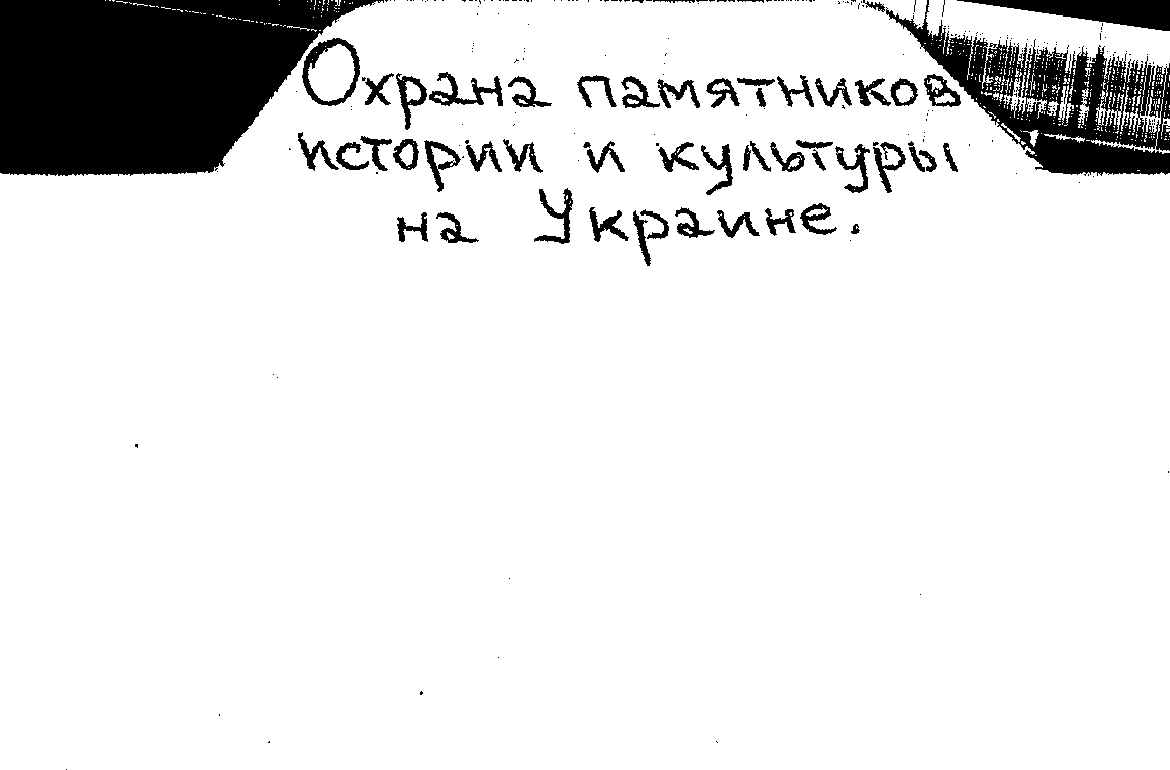 Охрана памятников
истории и культуры
на Украине.